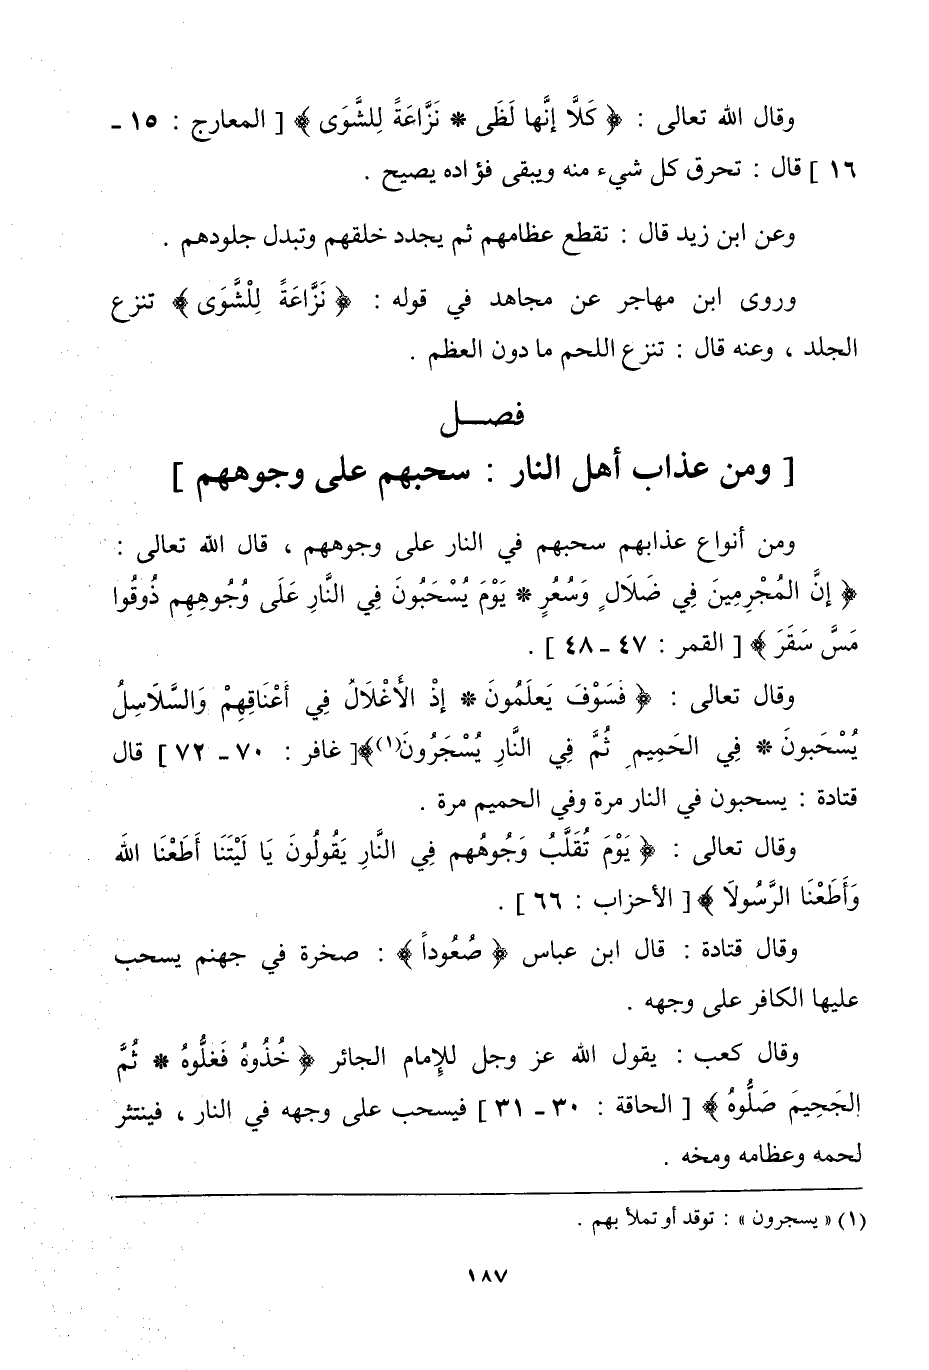 وقال الله تعالى : ﴿ كَلَّا إنَّها لَظَى * نَزَّاعَةً لِلشَّوَى ﴾ [ المعارج : ١٥ ـ
١٦ ] قال : تحرق كل شيء منه ويبقى فؤاده يصيح .
وعن ابن زيد قال : تقطع عظامهم ثم يجدد خلقهم وتبدل جلودهم .
وروى ابن مهاجر عن مجاهد في قوله : ﴿ نَزَّاعَةً لِلْشَّوَى ﴾ تنزع
الجلد ، وعنه قال : تنزع اللحم ما دون العظم .
فصـــل
[ ومن عذاب أهل النار : سحبهم على وجوههم ]
ومن أنواع عذابهم سحبهم في النار على وجوههم ، قال الله تعالى :
﴿ إنَّ المُجْرِمِينَ فِي ضَلَالٍ وَسُعُرٍ * يَوْمَ يُسْحَبُونَ فِي النَّارِ عَلَى وُجُوهِهِم ذُوقُوا
مَسَّ سَقَرَ ﴾ [ القمر : ٤٧ ـ ٤٨ ] .
وقال تعالى : ﴿ فَسَوْفَ يَعلَمُونَ * إذْ الأَغْلَالُ فِي أَعْنَاقِهِمْ وَالسَّلَاسِلُ
يُسْحَبونَ * فِي الحَمِيمِ ثُمَّ فِي النَّارِ يُسْجَرُونَ(١)﴾[ غافر : ٧٠ ـ ٧٢ ] قال
قتادة : يسحبون في النار مرة وفي الحميم مرة .
وقال تعالى : ﴿ يَوْمَ تُقَلَّبُ وَجُوهُهم فِي النَّارِ يَقُولُونَ يَا لَيْتَنَا أَطَعْنَا الله
وَأَطَعْنَا الرَّسُولَا ﴾ [ الأحزاب : ٦٦ ] .
وقال قتادة : قال ابن عباس ﴿ صُعُوداً ﴾ : صخرة في جهنم يسحب
عليها الكافر على وجهه .
وقال كعب : يقول الله عز وجل للإمام الجائر ﴿ خُذُوهُ فَغلُّوهُ * ثُمَّ
الجَحِيمَ صَلُّوهُ ﴾ [ الحاقة : ٣٠ ـ ٣١ ] فيسحب على وجهه في النار ، فينتثر
لحمه وعظامه ومخه .
(١) « يسجرون » : توقد أو تملأ بهم .
١٨٧